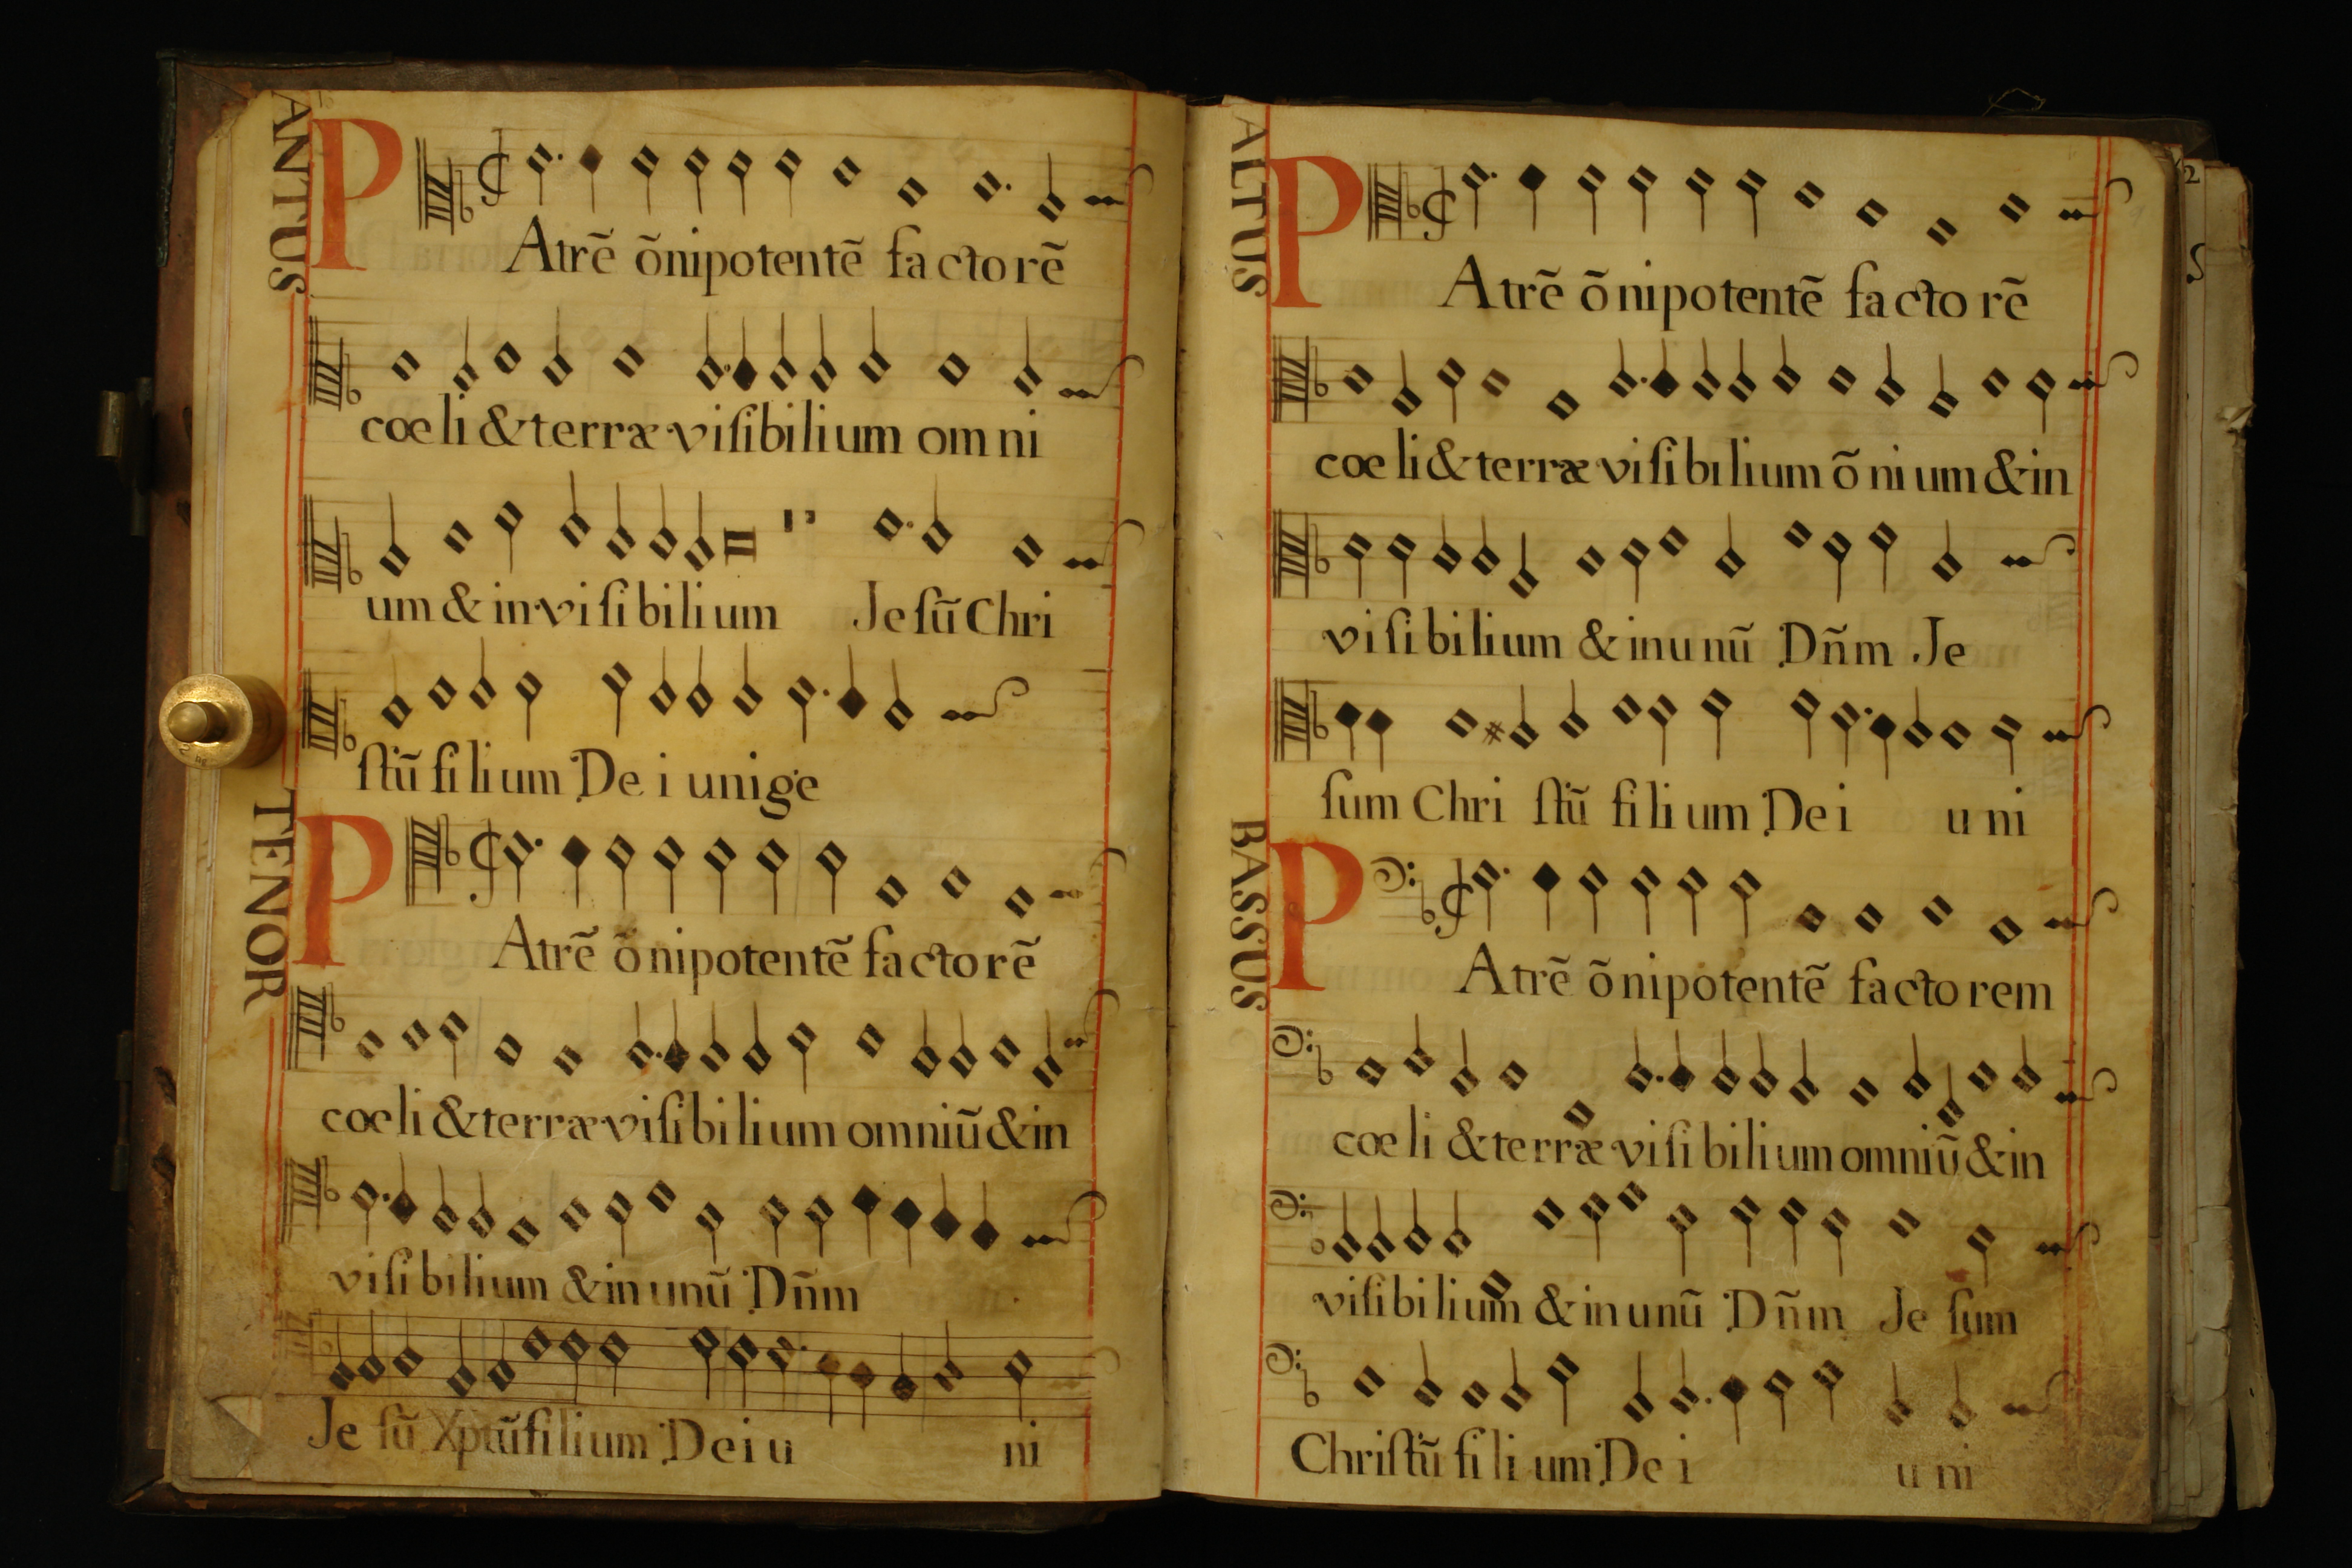 ANTUS
P
Atrẽ õnipotentẽ factorẽ
coeli & terræ viſibilium omni
um & inviſibilium Jeſũ Chri
ſtũ filium Dei unige
TENOR
P
Atrẽ õnipotentẽ factorẽ
coeli & terræ viſibilium omniũ & in
viſibilium & in unũ Dñm
Je ſũ Xptũ filium Dei u ni
ALTUS
P
Atrẽ õnipotentẽ factorẽ
coeli & terræ viſibilium õnium & in
viſibilium & in unũ Dñm Je
ſum Chri ſtũ filium Dei u ni
BASSUS
P
Atrẽ õnipotentẽ factorem
coeli & terræ viſibilium omniũ & in
viſibilium & in unũ Dñm Je ſum
Chriſtũ filium Dei u ni
2